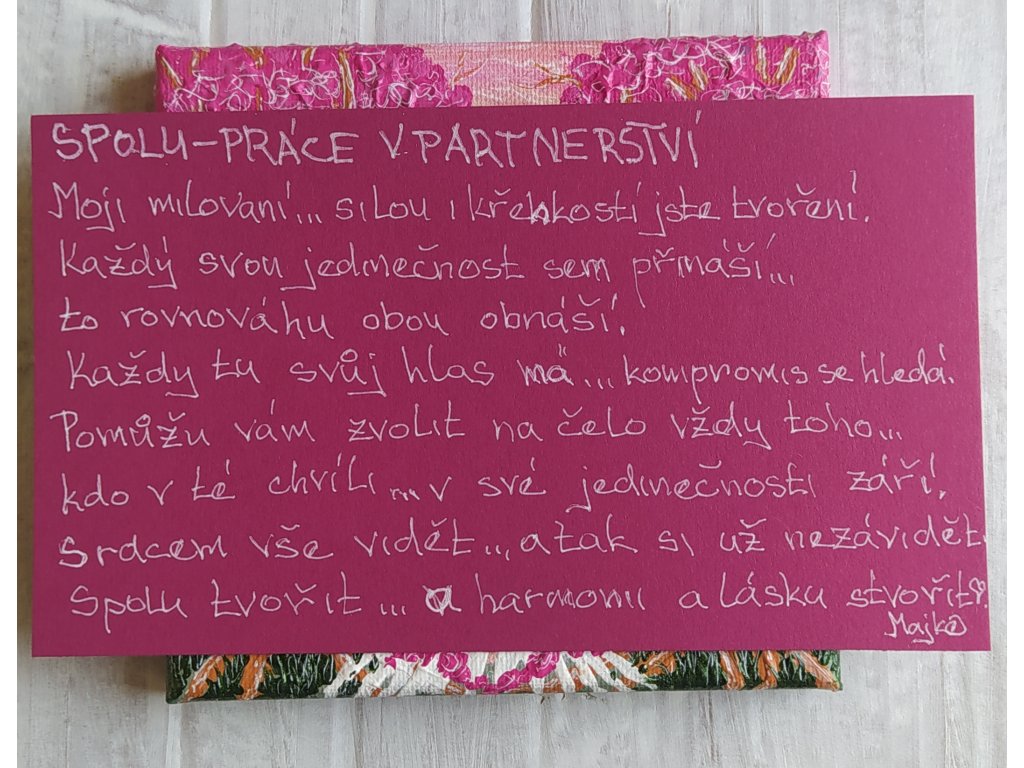 SPOLU-PRÁCE V PARTNERSTVÍ
Moji milovaní... silou i křehkostí jste tvořeni.
Každý svou jedinečnost sem přináší...
to rovnováhu obou obnáší.
Každy tu svůj hlas má... kompromis se hledá.
Pomůžu vám zvolit na čelo vždy toho...
kdo v té chvíli... v své jedinečnosti září.
Srdcem vše vidět... a tak si už nezávidět.
Spolu tvořit... a harmonii a lásku stvořit♡.
Majka